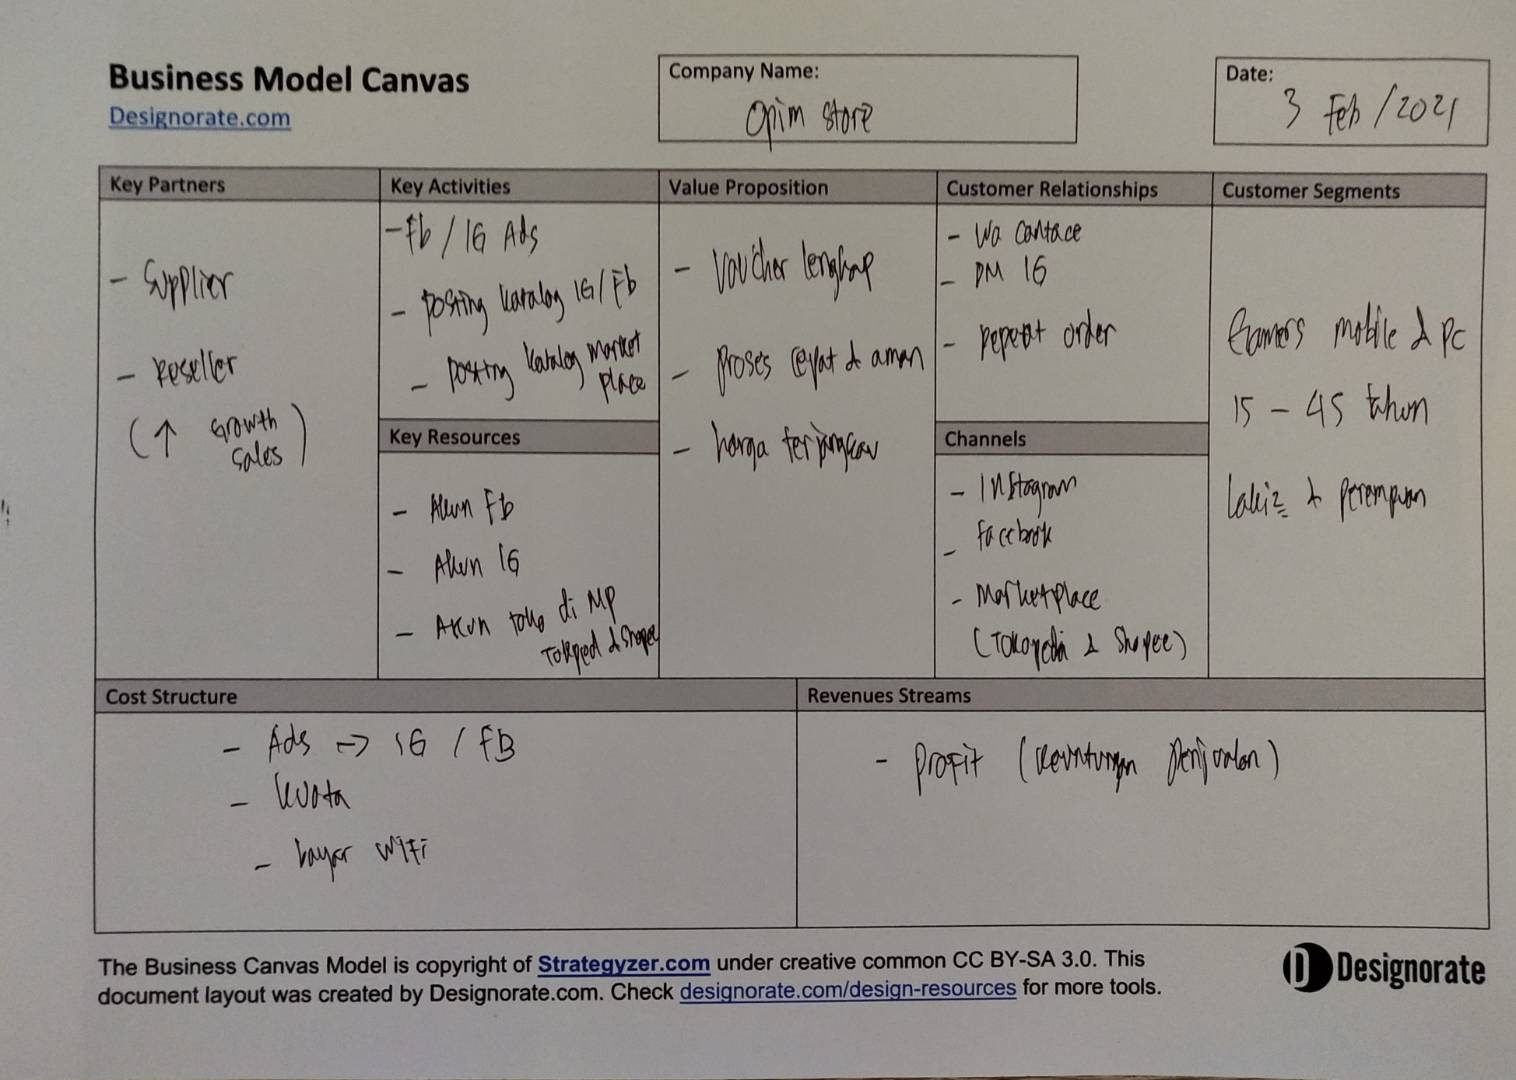 Business Model Canvas
Designorate.com
Company Name:
Opim Store
Date:
3 Feb / 2021
Key Partners
- Supplier
- Reseller
(↑ Growth
sales)
Key Activities
- Fb / IG Ads
- Posting Katalog IG / Fb
- Posting Katalog Market
place
Key Resources
- Akun Fb
- Akun IG
- Akun toko di MP
Tokped & Shopee
Value Proposition
- Voucher lengkap
- Proses cepat & aman
- harga terjangkau
Customer Relationships
- Wa Contace
- DM IG
- repeat order
Channels
- Instagram
- Facebook
- Marketplace
(Tokopedia & Shopee)
Customer Segments
Gamers mobile & Pc
15 - 45 tahun
Laki2 & Perempuan
Cost Structure
- Ads → IG / FB
- Kuota
- bayar Wifi
Revenues Streams
- Profit (keuntungan penjualan)
The Business Canvas Model is copyright of Strategyzer.com under creative common CC BY-SA 3.0. This
document layout was created by Designorate.com. Check designorate.com/design-resources for more tools.
D Designorate